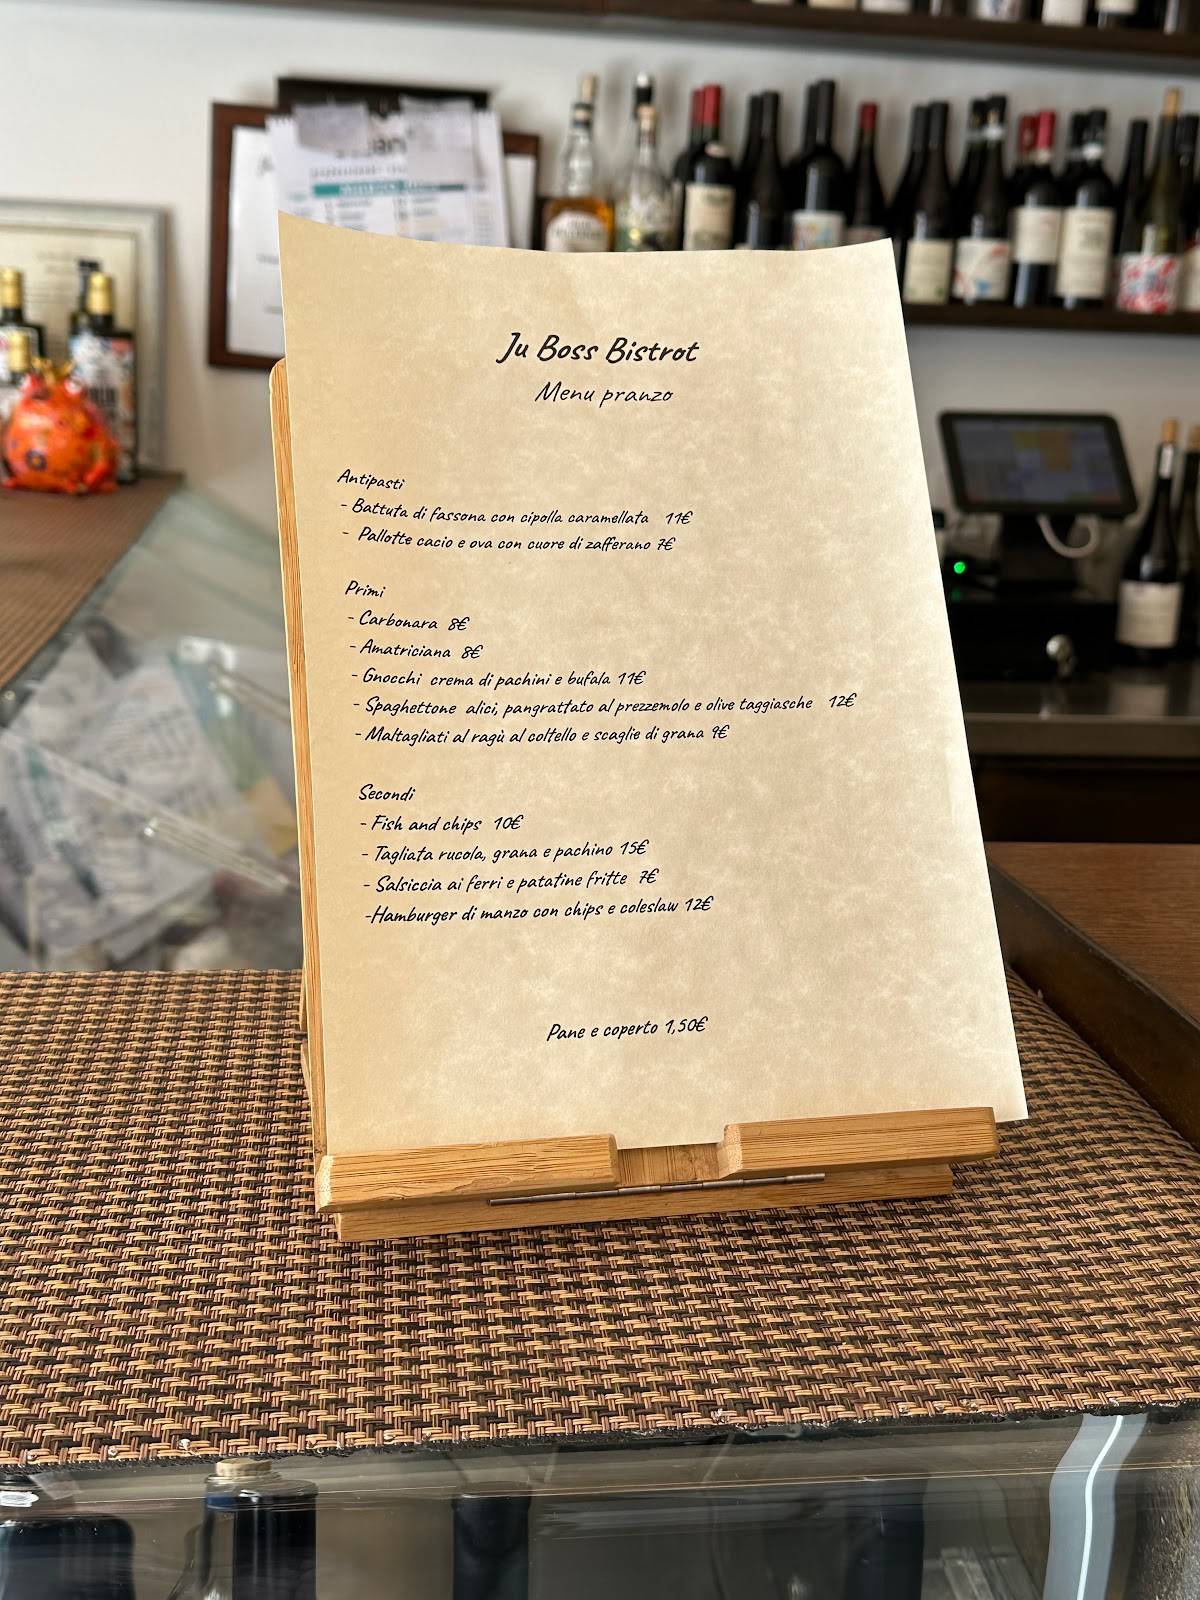 Ju Boss Bistrot
Menu pranzo
Antipasti
- Battuta di fassona con cipolla caramellata 11€
- Pallotte cacio e ova con cuore di zafferano 7€
Primi
- Carbonara 8€
- Amatriciana 8€
- Gnocchi crema di pachini e bufala 11€
- Spaghettone alici, pangrattato al prezzemolo e olive taggiasche 12€
- Maltagliati al ragù al coltello e scaglie di grana 9€
Secondi
- Fish and chips 10€
- Tagliata rucola, grana e pachino 15€
- Salsiccia ai ferri e patatine fritte 7€
-Hamburger di manzo con chips e coleslaw 12€
Pane e coperto 1,50€